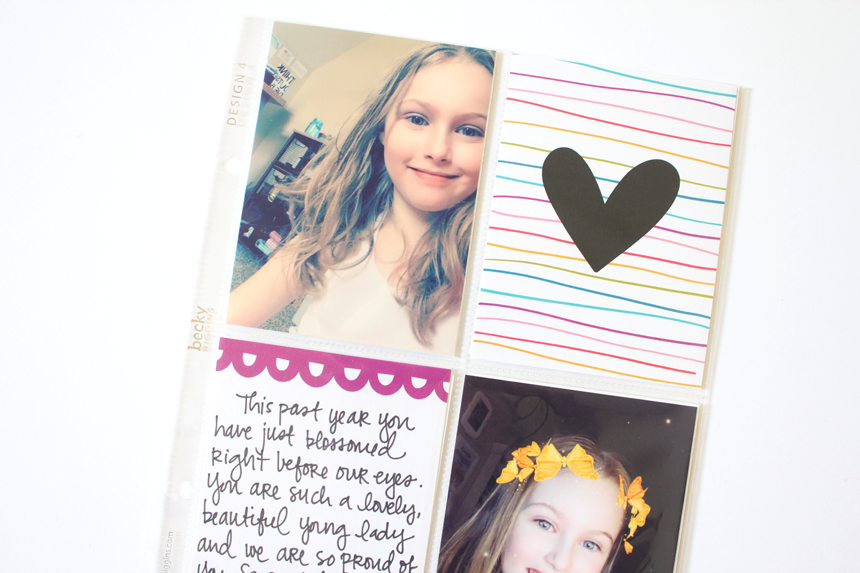 DESIGN 4
becky
HIGGINS
This past year you
have just blossomed
right before our eyes.
You are such a lovely,
beautiful young lady
and we are so proud of
iggins.com